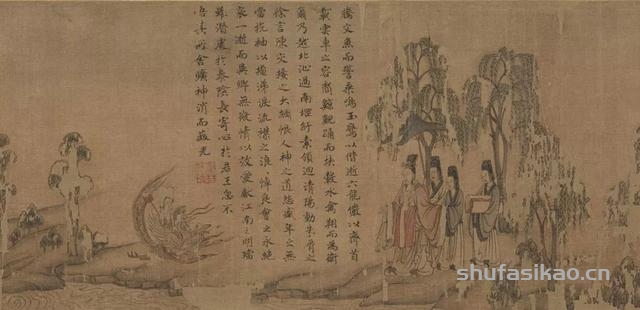 騰文魚而警乘鳴玉鸞以偕逝六龍儼以齊首
載雲車之容裔鯨鯢踊而夾轂水禽翔而為衛
爾乃越北沚過南堽紆素領迴清陽動朱脣之
徐言陳交接之大綱恨人神之道盛年之無
當抗袖以掩涕淚流襟之浪悼良會之永絕
哀一逝而異鄉無微情以效愛獻江南之明璫
雖潛處於泰陰長寄心於君王忽不
悟其所舍悵神消而蔽光
shufasikao.cn